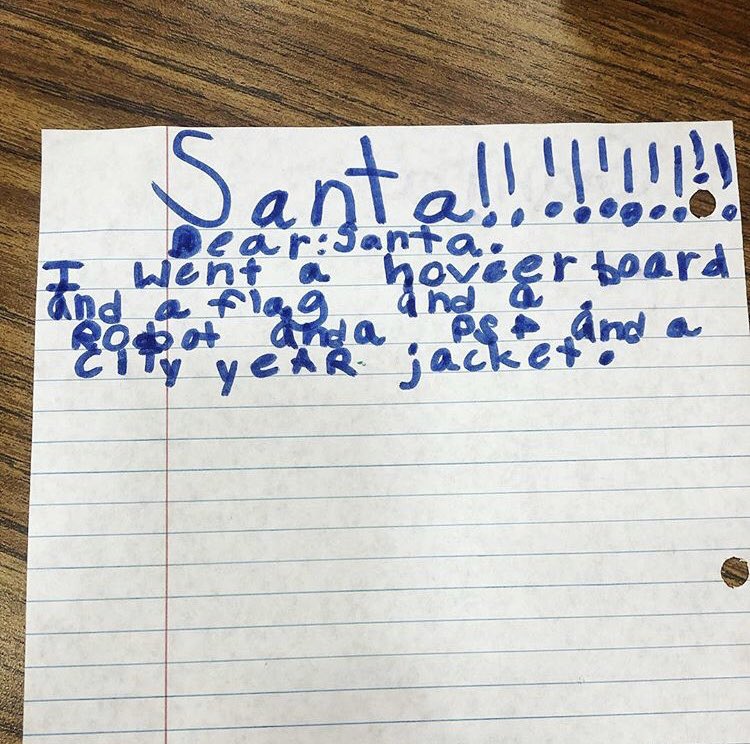 Santa!!!!!!!!!!
Dear:Santa.
I went a hoveer board
and a flag and a
RObot and a PS4 and a
City yeAR jacket.